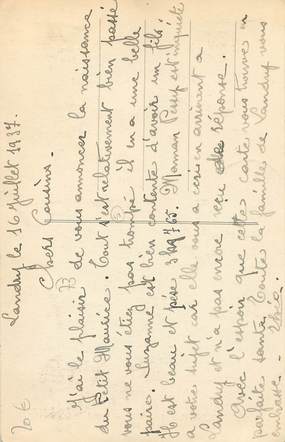 Landry le 16 Juillet 1937.
Chers Cousins.
J'ai le plaisir de vous annoncer la naissance
du Petit Maurice. Tout s'est relativement bien passé
vous ne vous êtiez pas trompé il en a une belle
paire. Suzanne est bien contente d'avoir un fils!
Il est beau et pèse 3k765. Maman est inquiète
a votre sujet car elle vous a écrit en arrivant a
Landry et n'a pas encore reçu de réponse.
Avec l'espoir que cette carte vous trouve en
parfaite santé. Toute la famille de Landry vous
embrasse.
20 €